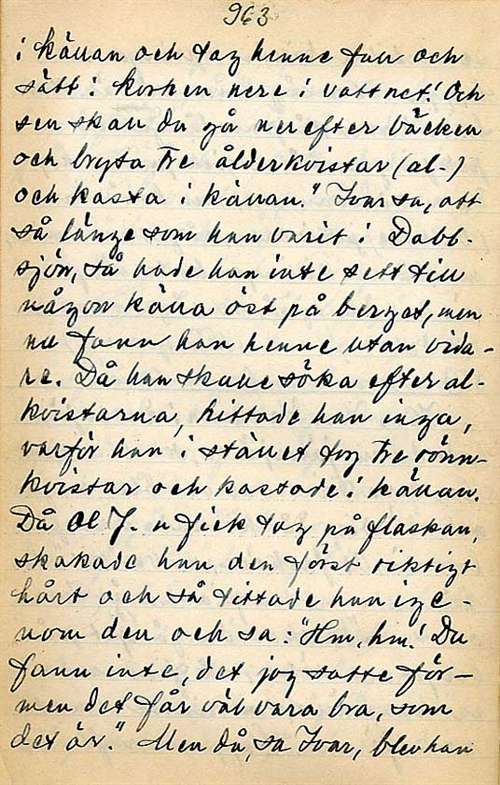 963
i källan och tag henne full och
sätt i korken nere i vattnet! Och
sen skall du gå ner efter bäcken
och bryta tre ålderkvistar (al-)
och kasta i källan." Ivar sa, att
så länge som han varit i Dabb-
sjön, så hade han inte sett till
någon källa öst på berget, men
nu fann han henne utan vida-
re. Då han skulle söka efter al-
kvistarna, hittade han inga,
varför han i stället tog tre rönn-
kvistar och kastade i källan.
Då Ol J. n fick tag på flaskan,
skakade han den först riktigt
hårt och så tittade han ige-
nom den och sa: "Hm, hm! Du
fann inte, det jag satte för -
men det får väl vara bra, som
det är." Men då, sa Ivar, blev han